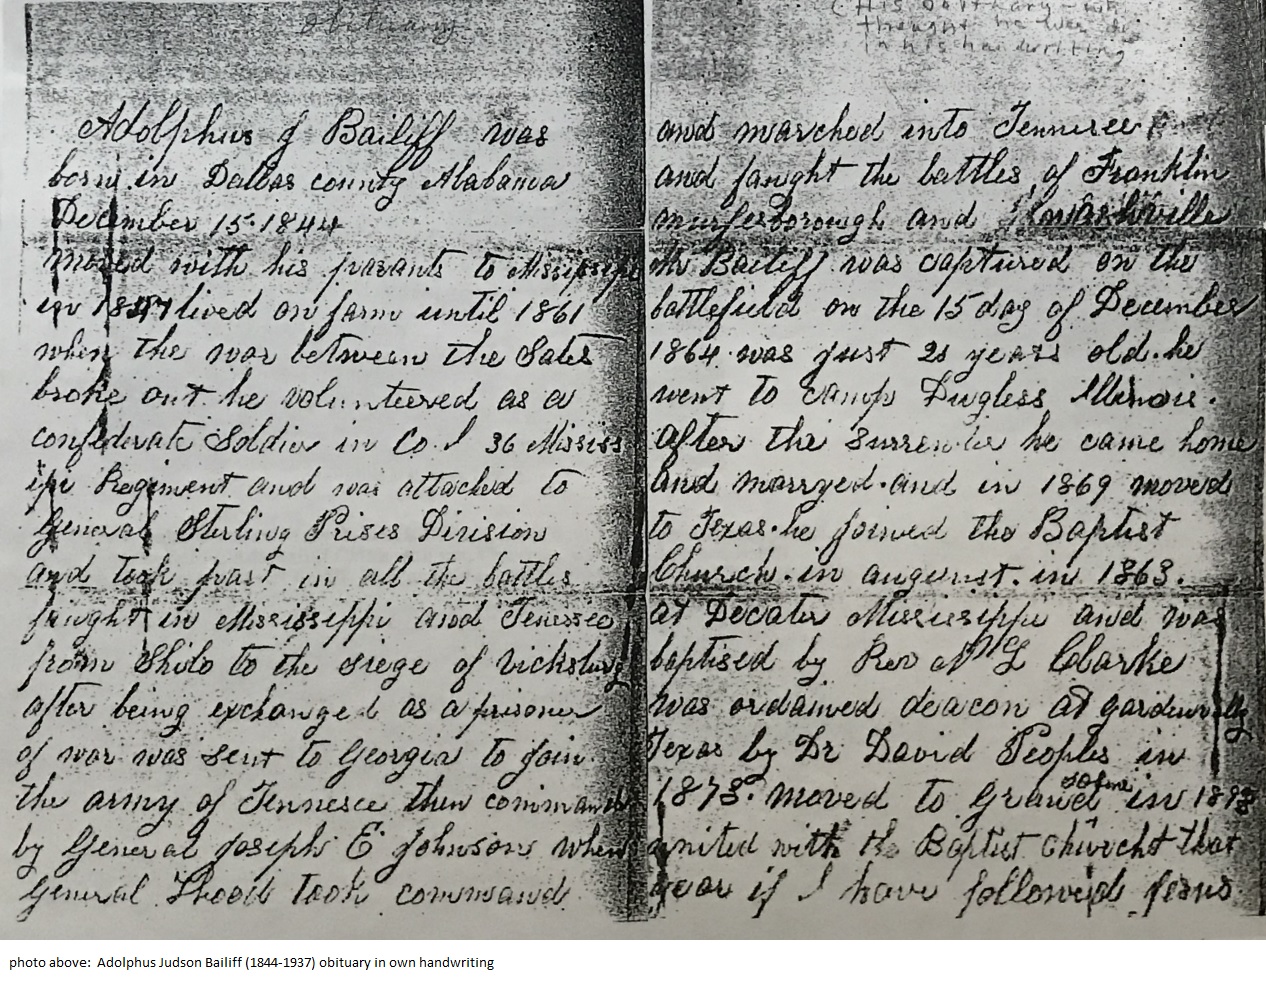 obituary
Adolphus J Bailiff was
born in Dallas county Alabama
December 15 1844
moved with his parants to Mississippi
in lived on farm until 1861
when the war between the Sates
broke out he volunteered as a
confederate Soldier in Co. I 36 Mississ
ippi Regiment and was attached to
General Sterling Prises Division
and took part in all the battles
fought in Mississippi and Tenessee
from Shilo to the siege of Vicksburg
after being exchanged as a prisoner
of war was sent to Georgia to join
the army of Tennesee then command
by General Joseph E Johnson when
General Hood took command
(His obituary -
thought he was
in his handwriting
and marched into Tennesee
and faught the battles of Franklin
murfesborough and Nashville
Mr Bailiff was captured on the
battlefield on the 15 day of December
1864. was just years old. he
went to camp Dugless Illinois.
after the Surrender he came home
and marryed. and in 1869 moved
to Texas. he joined the Baptist
Church. in august. in 1863.
at Decater Mississippi and was
baptised by Rev N L Clarke
was ordained deacon at
Texas by Dr David Peoples in
1878. moved to Grand Saline in
united with the Baptist church that
year if I have followed Jesus
photo above: Adolphus Judson Bailiff (1844-1937) obituary in own handwriting